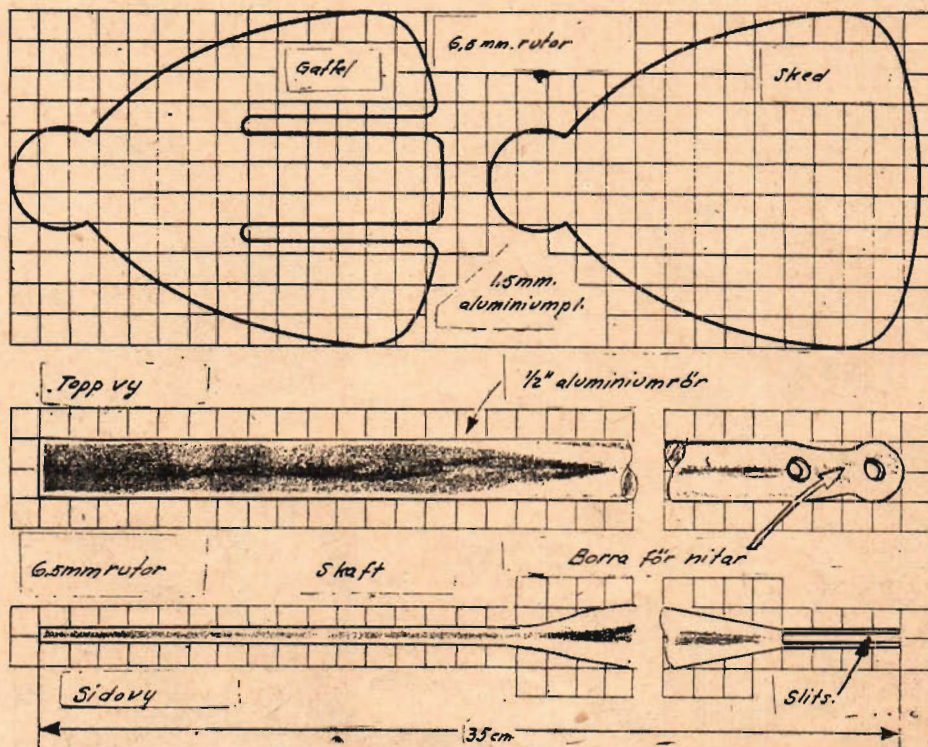 Gaffel
6,5mm. rutor
Sked
1,5mm.
aluminiumpl.
Topp vy
1/2" aluminiumrör
6,5mm rutor
Skaft
Borra för nitar
Sidovy
Slits.
35cm